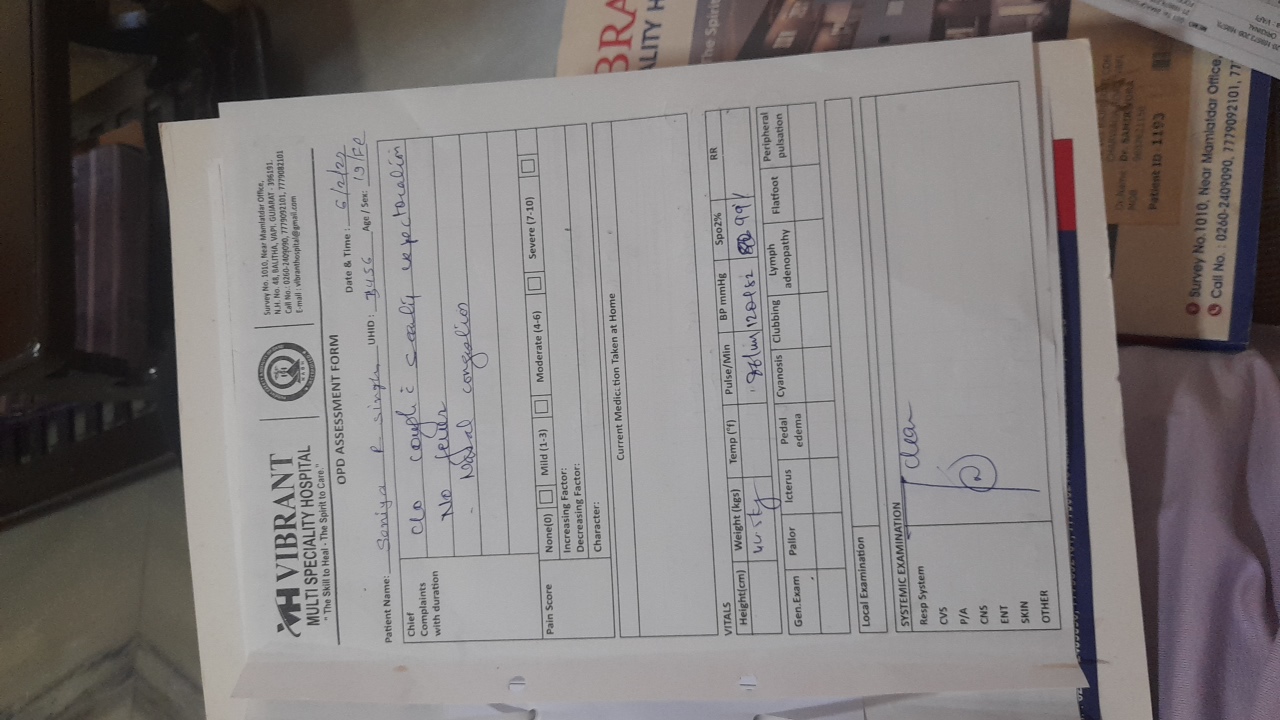 VIBRANT
MULTI SPECIALITY HOSPITAL
"The Skill to Heal - The Spirit to Care."
Survey No. 1010, Near Mamlatdar Office,
N.H. No. 48, BALITHA, VAPI, GUJARAT - 396191.
Call No.: 0260-2409090, 7779092101, 7779082101
E-mail : vibranthospital@gmail.com
OPD ASSESSMENT FORM
Date & Time : 6/2/22
Patient Name: Soniya R. Singh UHID : Age / Sex: 19/Fe
Chief Complaints with duration
c/o cough c̄ scanty expectoration
No fever
- Nasal congestion
Pain Score None(0) Mild (1-3) Moderate (4-6) Severe (7-10)
Increasing Factor:
Decreasing Factor:
Character:
Current Medication Taken at Home
VITALS
Height(cm) Weight (kgs) Temp (°f) Pulse/Min BP mmHg Spo2% RR
120/82 99%
Gen.Exam Pallor Icterus Pedal edema Cyanosis Clubbing Lymph adenopathy Flatfoot Peripheral pulsation
Local Examination
SYSTEMIC EXAMINATION
Resp System clear
CVS
P/A
CNS
ENT
SKIN
OTHER
BRA
ALITY H
The Spirit
Dr.Name : Dr. SAMIR VORA
MOB
Patient ID 1193
Survey No.1010, Near Mamlatdar Office,
Call No. : 0260-2409090, 7779092101, 77